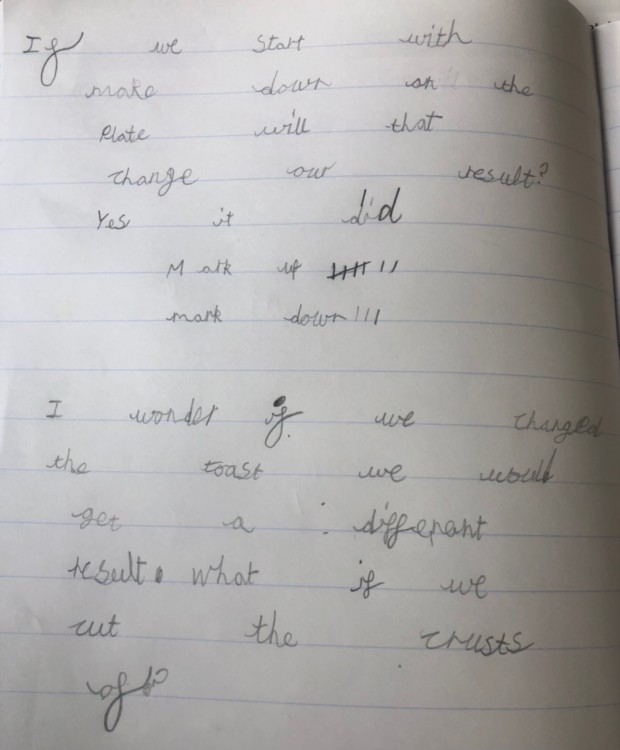 If we start with
make down on the
Plate will that
change our result?
Yes it did
Mark up 卌 II
mark down III
I wonder if we changed
the toast we would
get a different
result. what if we
cut the crusts
of?